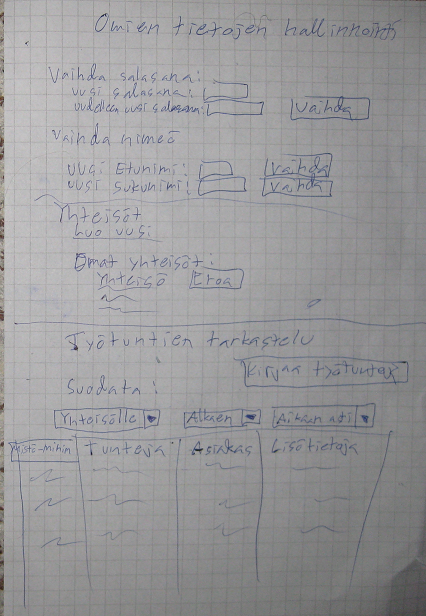 Omien tietojen hallinnointi
Vaihda salasana:
uusi salasana:
uudelleen uusi salasana:
Vaihda
Vaihda nimeä
uusi Etunimi:
Vaihda
uusi sukunimi:
Vaihda
Yhteisöt
luo uusi
Omat yhteisöt:
Yhteisö
Eroa
Työtuntien tarkastelu
Kirjaa työtunteja
Suodata:
Yhteisölle
Alkaen
Mistä-Mihin
Tunteja
Asiakas
Lisätietoja